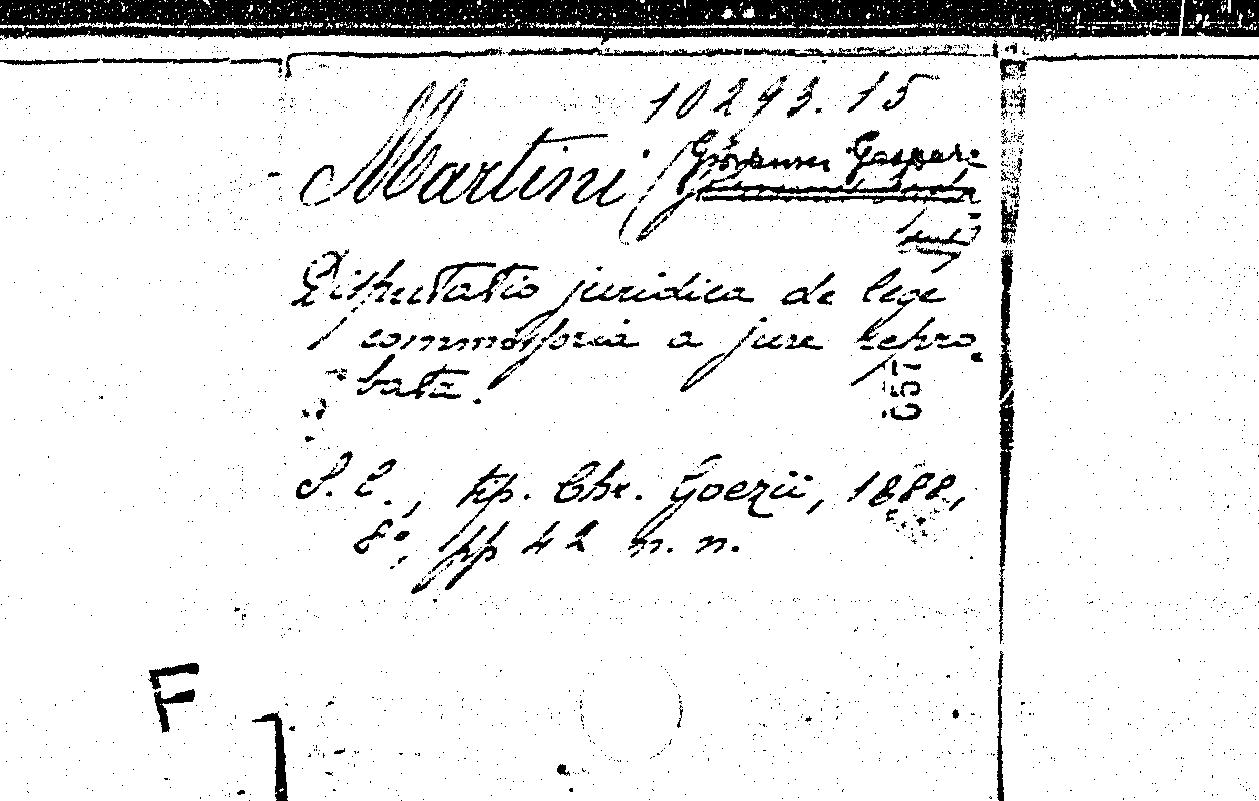 10293.15
Martini (Giovanni Gaspare
Disputatio juridica de lege
commissoria a jure repro-
bata.
657
S. l., tip. Chr. Goezii, 1888,
8°, pp 42 n. n.
F